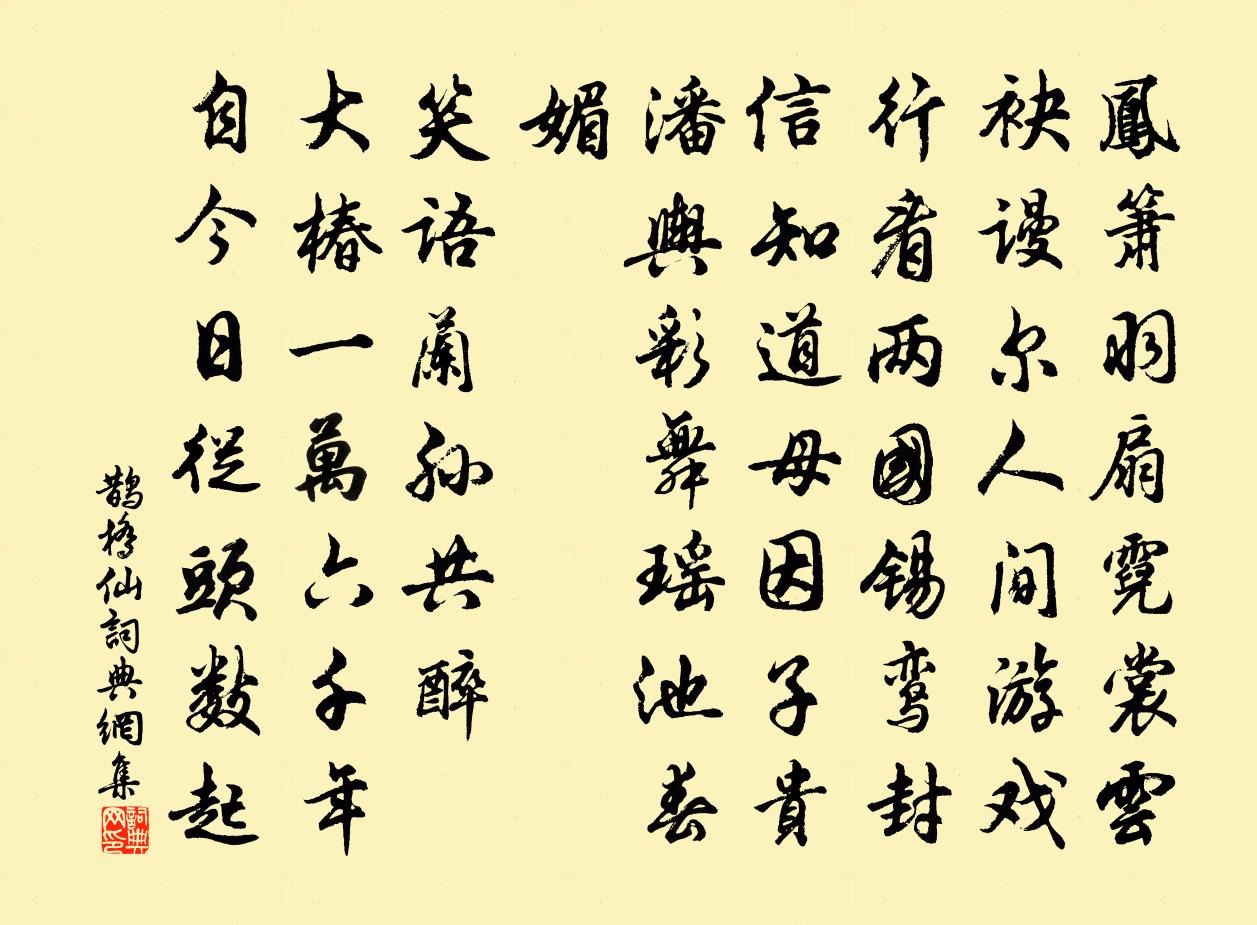 鳳簫羽扇霓裳雲
袂谩尔人间游戏
行看两國锡鸾封
信知道母因子貴
潘輿彩舞瑶池春
媚
笑語蘭孙共醉
大椿一萬六千年
自今日從頭数起
鹊橋仙詞典網集
詞典网印